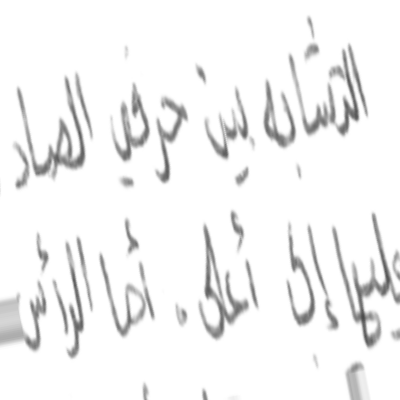 التشابه بين حرفي الصاد
عليها إلى أعلى . أما الرأس